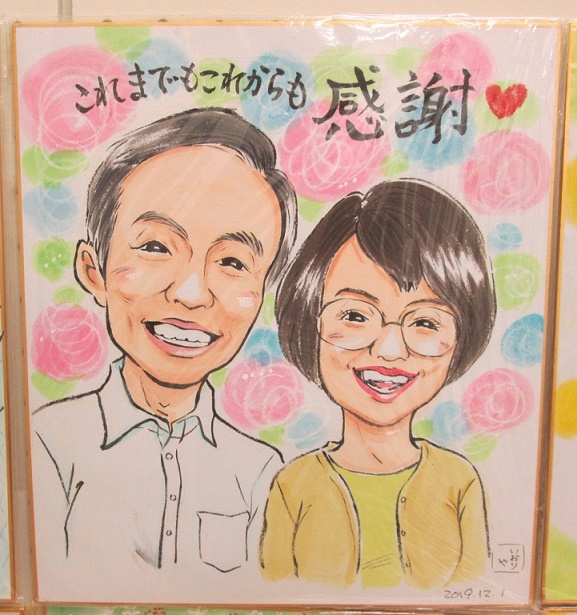 これまでもこれからも 感謝
いおり
や
2019.12.1